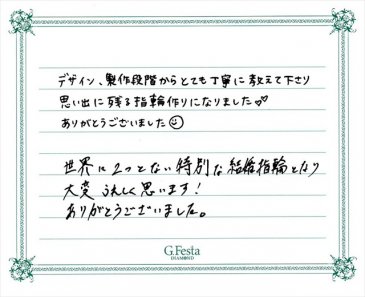 デザイン、製作段階からとても丁寧に教えて下さり
思い出に残る指輪作りになりました♡♡
ありがとうございました☺
世界に2つとない特別な結婚指輪となり
大変うれしく思います!
ありがとうございました。
G.Festa
DIAMOND